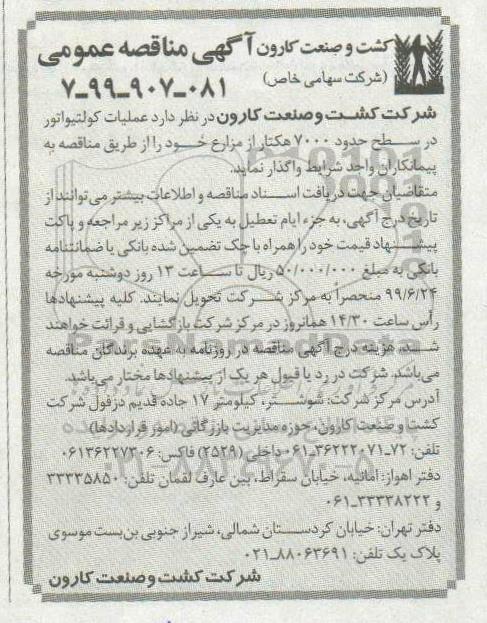 کشت و صنعت کارون آگهی مناقصه عمومی
(شرکت سهامی خاص) ۷ـ۹۹ـ۹۰۷ـ۰۸۱
شرکت کشت و صنعت کارون در نظر دارد عملیات کولتیواتور
در سطح حدود ۷۰۰۰ هکتار از مزارع خود را از طریق مناقصه به
پیمانکاران واجد شرایط واگذار نماید.
متقاضیان جهت دریافت اسناد مناقصه و اطلاعات بیشتر می‌توانند از
تاریخ درج آگهی، به جزء ایام تعطیل به یکی از مراکز زیر مراجعه و پاکت
پیشنهاد قیمت خود را همراه با چک تضمین شده بانکی یا ضمانتنامه
بانکی به مبلغ ۵۰/۰۰۰/۰۰۰ ریال تا ساعت ۱۳ روز دوشنبه مورخه
۹۹/۶/۲۴ منحصراً به مرکز شرکت تحویل نمایند. کلیه پیشنهادها
رأس ساعت ۱۴/۳۰ همانروز در مرکز شرکت بازگشایی و قرائت خواهند
شد. هزینه درج آگهی مناقصه در روزنامه به عهده برندگان مناقصه
می‌باشد. شرکت در رد یا قبول هر یک از پیشنهادها مختار می‌باشد.
آدرس مرکز شرکت: شوشتر، کیلومتر ۱۷ جاده قدیم دزفول شرکت
کشت و صنعت کارون، حوزه مدیریت بازرگانی (امور قراردادها)
تلفن: ۷۲ـ۳۶۲۲۲۰۷۱ـ۰۶۱ داخلی (۲۵۲۹) فاکس: ۰۶۱۳۶۲۲۷۳۰۶
دفتر اهواز: امانیه، خیابان سقراط، بین عارف لقمان تلفن: ۳۳۳۳۵۸۵۰
و ۳۳۳۳۸۲۲۲ـ۰۶۱
دفتر تهران: خیابان کردستان شمالی، شیراز جنوبی بن‌بست موسوی
پلاک یک تلفن: ۸۸۰۶۳۶۹۱ـ۰۲۱
شرکت کشت و صنعت کارون
ParsNamadData
۰۲۱-۸۸۳۴۹۶۷۰-۵